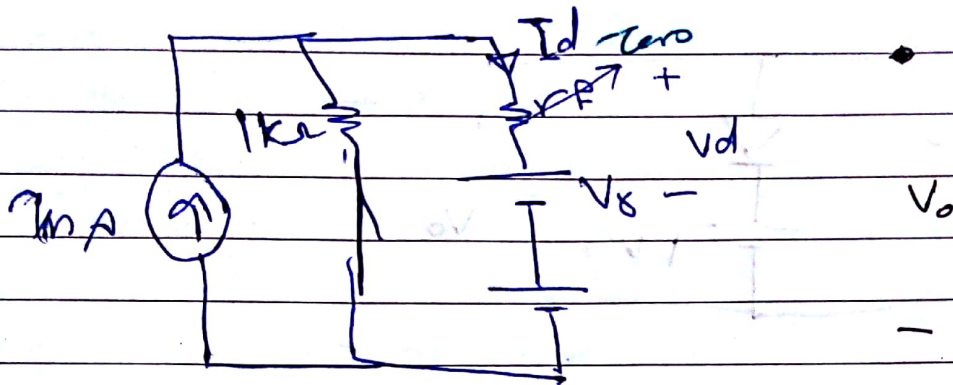 Id zero
+
1kΩ
rf
Vd
Vγ -
Vo
-